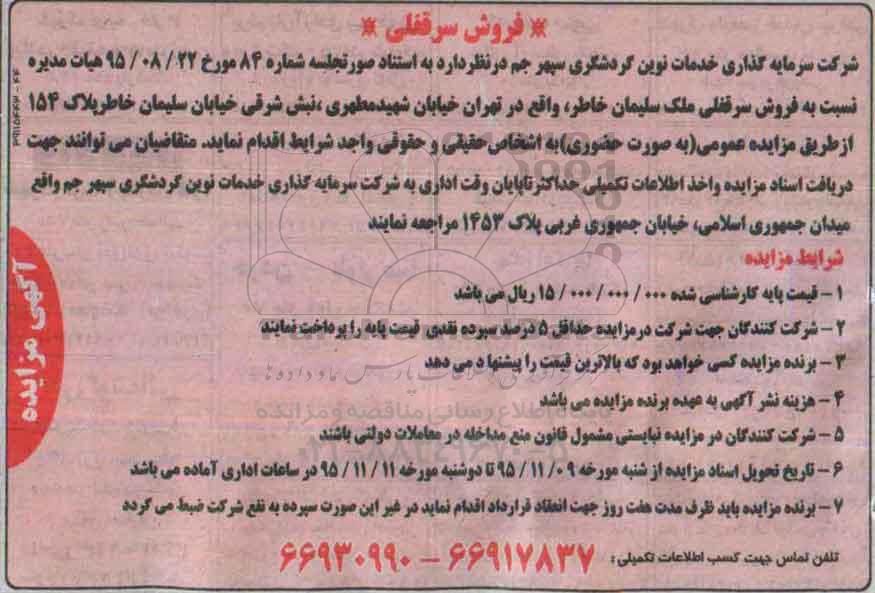 فروش سرقفلی
شرکت سرمایه گذاری خدمات نوین گردشگری سپهر جم درنظردارد به استناد صورتجلسه شماره ۸۴ مورخ ۲۲ / ۰۸ / ۹۵ هیات مدیره
نسبت به فروش سرقفلی ملک سلیمان خاطر، واقع در تهران خیابان شهیدمطهری ،نبش شرقی خیابان سلیمان خاطرپلاک ۱۵۴
ازطریق مزایده عمومی(به صورت حضوری)به اشخاص حقیقی و حقوقی واجد شرایط اقدام نماید. متقاضیان می توانند جهت
دریافت اسناد مزایده واخذ اطلاعات تکمیلی حداکثرتاپایان وقت اداری به شرکت سرمایه گذاری خدمات نوین گردشگری سپهر جم واقع
میدان جمهوری اسلامی، خیابان جمهوری غربی پلاک ۱۴۵۳ مراجعه نمایند
شرایط مزایده
۱ - قیمت پایه کارشناسی شده ۰۰۰ / ۰۰۰ / ۰۰۰ / ۱۵ ریال می باشد
۲ - شرکت کنندگان جهت شرکت درمزایده حداقل ۵ درصد سپرده نقدی قیمت پایه را پرداخت نمایند
۳ - برنده مزایده کسی خواهد بود که بالاترین قیمت را پیشنهاد می دهد
۴ - هزینه نشر آگهی به عهده برنده مزایده می باشد
۵ - شرکت کنندگان در مزایده نبایستی مشمول قانون منع مداخله در معاملات دولتی باشند
۶ - تاریخ تحویل اسناد مزایده از شنبه مورخه ۰۹ / ۱۱ / ۹۵ تا دوشنبه مورخه ۱۱ / ۱۱ / ۹۵ در ساعات اداری آماده می باشد
۷ - برنده مزایده باید ظرف مدت هفت روز جهت انعقاد قرارداد اقدام نماید در غیر این صورت سپرده به نفع شرکت ضبط می گردد
تلفن تماس جهت کسب اطلاعات تکمیلی: ۶۶۹۱۷۸۳۷ - ۶۶۹۳۰۹۹۰
آگهی مزایده